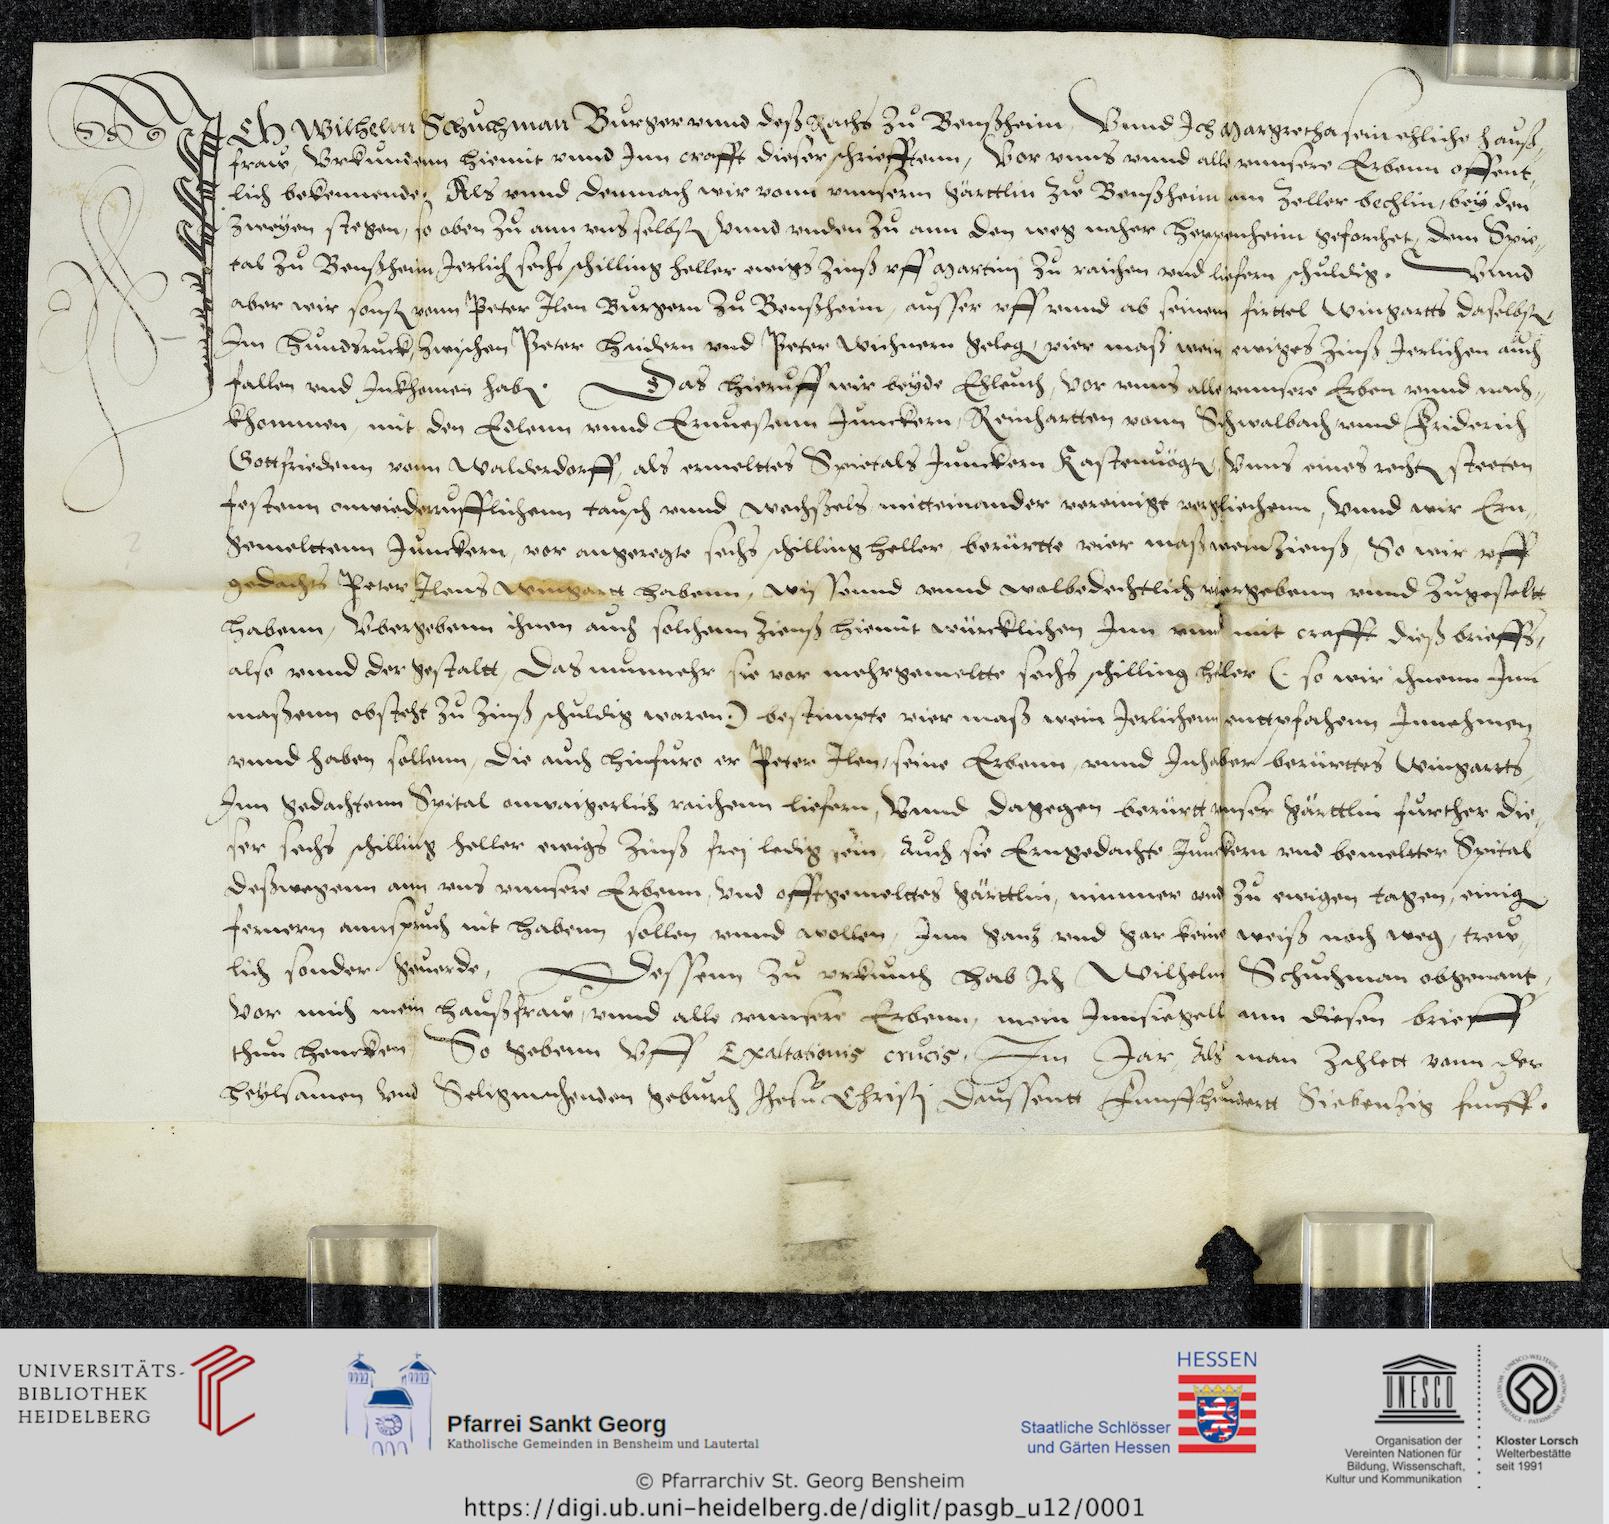 ICh Wilhelm Schuchman Burger vnnd deß Raths Zu Benßheim, Vnnd Ich Margretha sein ehliche Hauß,
fraw, Vrkundenn hiemit vnnd Inn crafft dieser schriefftenn, Vor vnns vnnd alle vnnsere Erbenn offent,
lich bekennende, Als vnnd demnach wir vonn vnnserm gärttlin Zue Benßheim am Zeller bechlin, bey den
Zweyen stegen, so oben Zu ann vns selbst, vnnd vnden Zu ann den weg naher Heppenheim geforchet, dem Spie,
tal Zu Benßheim Jerlich sechs schilling heller ewigs Zinß vff Martinj Zu raichen vnd liefern schuldig. Vnnd
aber wir sonst vonn Peter Ilen Burgern Zu Benßheim, ausser vff vnnd ab seinem firttel Wingartts daselbst,
Im Hundsruck, Zwischen Peter Haidern vnd Peter Wichnern geleg, vier maß wein ewiges Zinß Jerlichen auch
fallen vnd Inkhomen hab. Das hieruff wir beyde Ehleuth, vor vnns alle vnnsere Erben vnnd nach,
khommen, mit den Edlenn vnnd Ernuestenn Junckern, Reinhartten vonn Schwalbach, vnnd Friderich
Gottfriedenn vonn Walderdorff, als ermelttes Spietals Junckern Kastenuögt, Vnns eines recht steeten
festenn onwiederrufflichenn tausch vnnd wechßels mitteinander vereinigt vergliechenn, Vnnd wir Ern,
gemelttenn Junckern, vor angeregte sechs schilling heller berürtte vier maß wein Zienß, So wir vff
gedachts Peter Ilens Wingartt habenn, wissennd vnnd wolbedechtlich vbergebenn vnnd Zugestelt
habenn, Vbergebenn ihnen auch solchenn Zienß hiemit würcklichen Inn vnnd mit crafft dieß brieffs,
also vnnd der gestaltt, Das nunmehr sie vor mehrgemeltte sechs schilling heler (: so wir ihnenn Inn
maßenn obsteht Zu Zinß schuldig waren:) bestimpte vier maß wein Jerlichenn enttpfahenn Innehmen
vnnd haben sollenn, Die auch hinfuro er Peter Ilen, seine Erbenn, vnnd Inhaber berürttes Wingartts,
Inn gedachtenn Spital onwaigerlich raichenn liefern, Vnnd dagegen berürtt vnser gärttlin further die,
ser sechs schilling heller ewigs Zinß frej ledig sein, Auch sie Erngedachte Junckern vnd bemeltter Spital
deßwegenn ann vns vnnsere Erbenn, vnd offtgemelttes gärttlin, nimmer vnd Zu ewigen tagen, einig
fernern annspruch nit habenn sollen vnnd wollen, Inn ganz vnd gar keine weiß noch weg, trew,
lich sonder geuerde, Dessenn Zu vrkunth hab Ich Wilhelm Schuchman obgenant,
Vor mich mein Haußfraw, vnnd alle vnnsere Erbenn, mein Innsiegell ann diesen brieff
thun hencken So gebenn Vff Exaltationis crucis. Im Jar, Als man Zahlett vonn der
heylsamen vnd Seligmachenden geburth Jhesu Christj Daussentt Funffhundertt Siebenzig funff.
UNIVERSITÄTS-
BIBLIOTHEK
HEIDELBERG
Pfarrei Sankt Georg
Katholische Gemeinden in Bensheim und Lautertal
HESSEN
Staatliche Schlösser
und Gärten Hessen
UNESCO
Organisation der
Vereinten Nationen für
Bildung, Wissenschaft,
Kultur und Kommunikation
Kloster Lorsch
Welterbestätte
seit 1991
© Pfarrarchiv St. Georg Bensheim
https://digi.ub.uni-heidelberg.de/diglit/pasgb_u12/0001